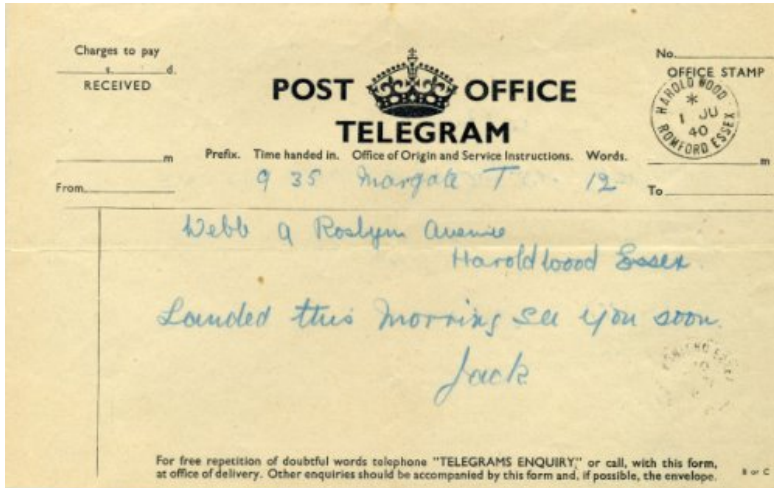 Charges to pay
s. d.
RECEIVED
No.
OFFICE STAMP
POST OFFICE
TELEGRAM
HAROLD WOOD
*
1 JU
40
ROMFORD ESSEX
Prefix. Time handed in. Office of Origin and Service Instructions. Words.
m
m
9 35 Margate T 12
From
To
Webb 9 Roslyn Avenue
Haroldwood Essex
Landed this morning see you soon.
Jack
For free repetition of doubtful words telephone "TELEGRAMS ENQUIRY," or call, with this form,
at office of delivery. Other enquiries should be accompanied by this form and, if possible, the envelope.
B or C